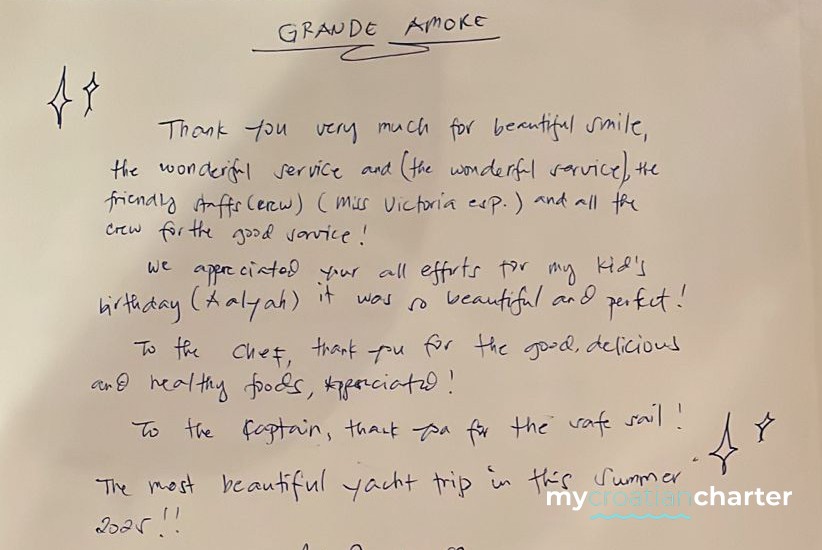 GRANDE AMORE
Thank you very much for beautiful smile,
the wonderful service and (the wonderful service), the
friendly staffs (crew) (miss Victoria esp.) and all the
crew for the good service!
We appreciated your all efforts for my kid's
birthday (Aalyah) it was so beautiful and perfect!
To the Chef, thank you for the good, delicious
and healthy foods, appreciated!
To the Captain, thank you for the safe sail!
The most beautiful yacht trip in this summer
2025!!
mycroatiancharter